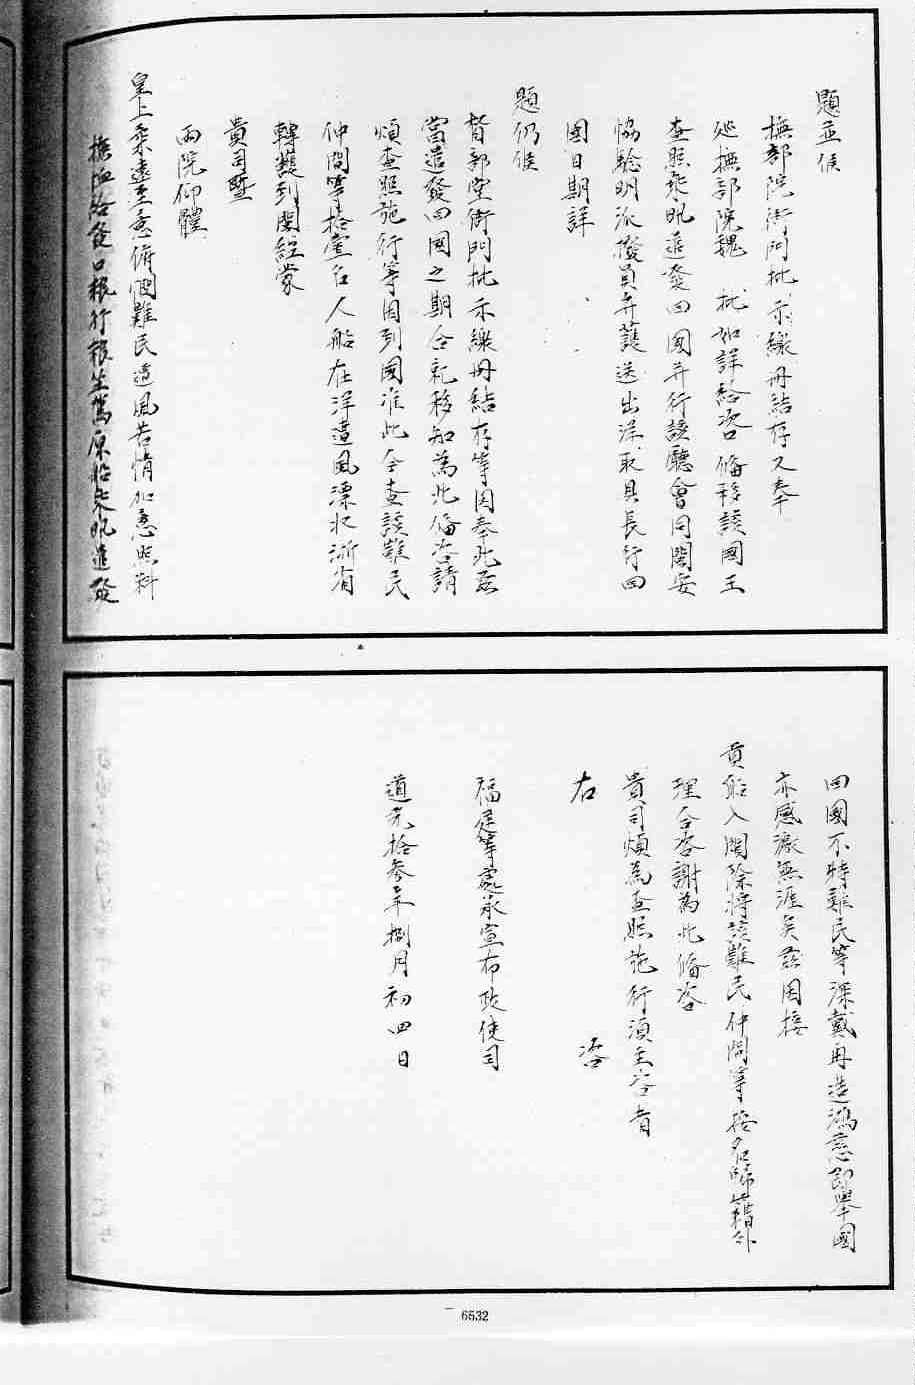 題並候
撫部院衙門批示繳册結存又奉
巡撫部院魏　批如詳給咨口偹移該國王
查照乘汛遣發回國并行該廳會同閩安
恊驗明派撥員弁護送出洋取具長行回
國日期詳
題仍候
督部堂衙門批示繳册結存等因奉此茲
當遣發回國之期合就移知為此偹咨請
煩查照施行等因到國准此合查該難民
仲間等拾壹名人船在洋遭風漂收浙省
轉護到閩經蒙
貴司暨
兩院仰體
皇上柔遠至意俯憫難民遭風苦情加意照料
撫恤給發口粮行粮坐駕原船乘汛遣發
回國不特難民等深戴再造鴻慈即舉國
亦感激無涯矣茲因接
貢船入閩除將該難民仲間等按名歸籍外
理合咨謝為此偹咨
貴司煩為查照施行須至咨者
右　咨
福建等處承宣布政使司
道光拾參年捌月初四日
6532